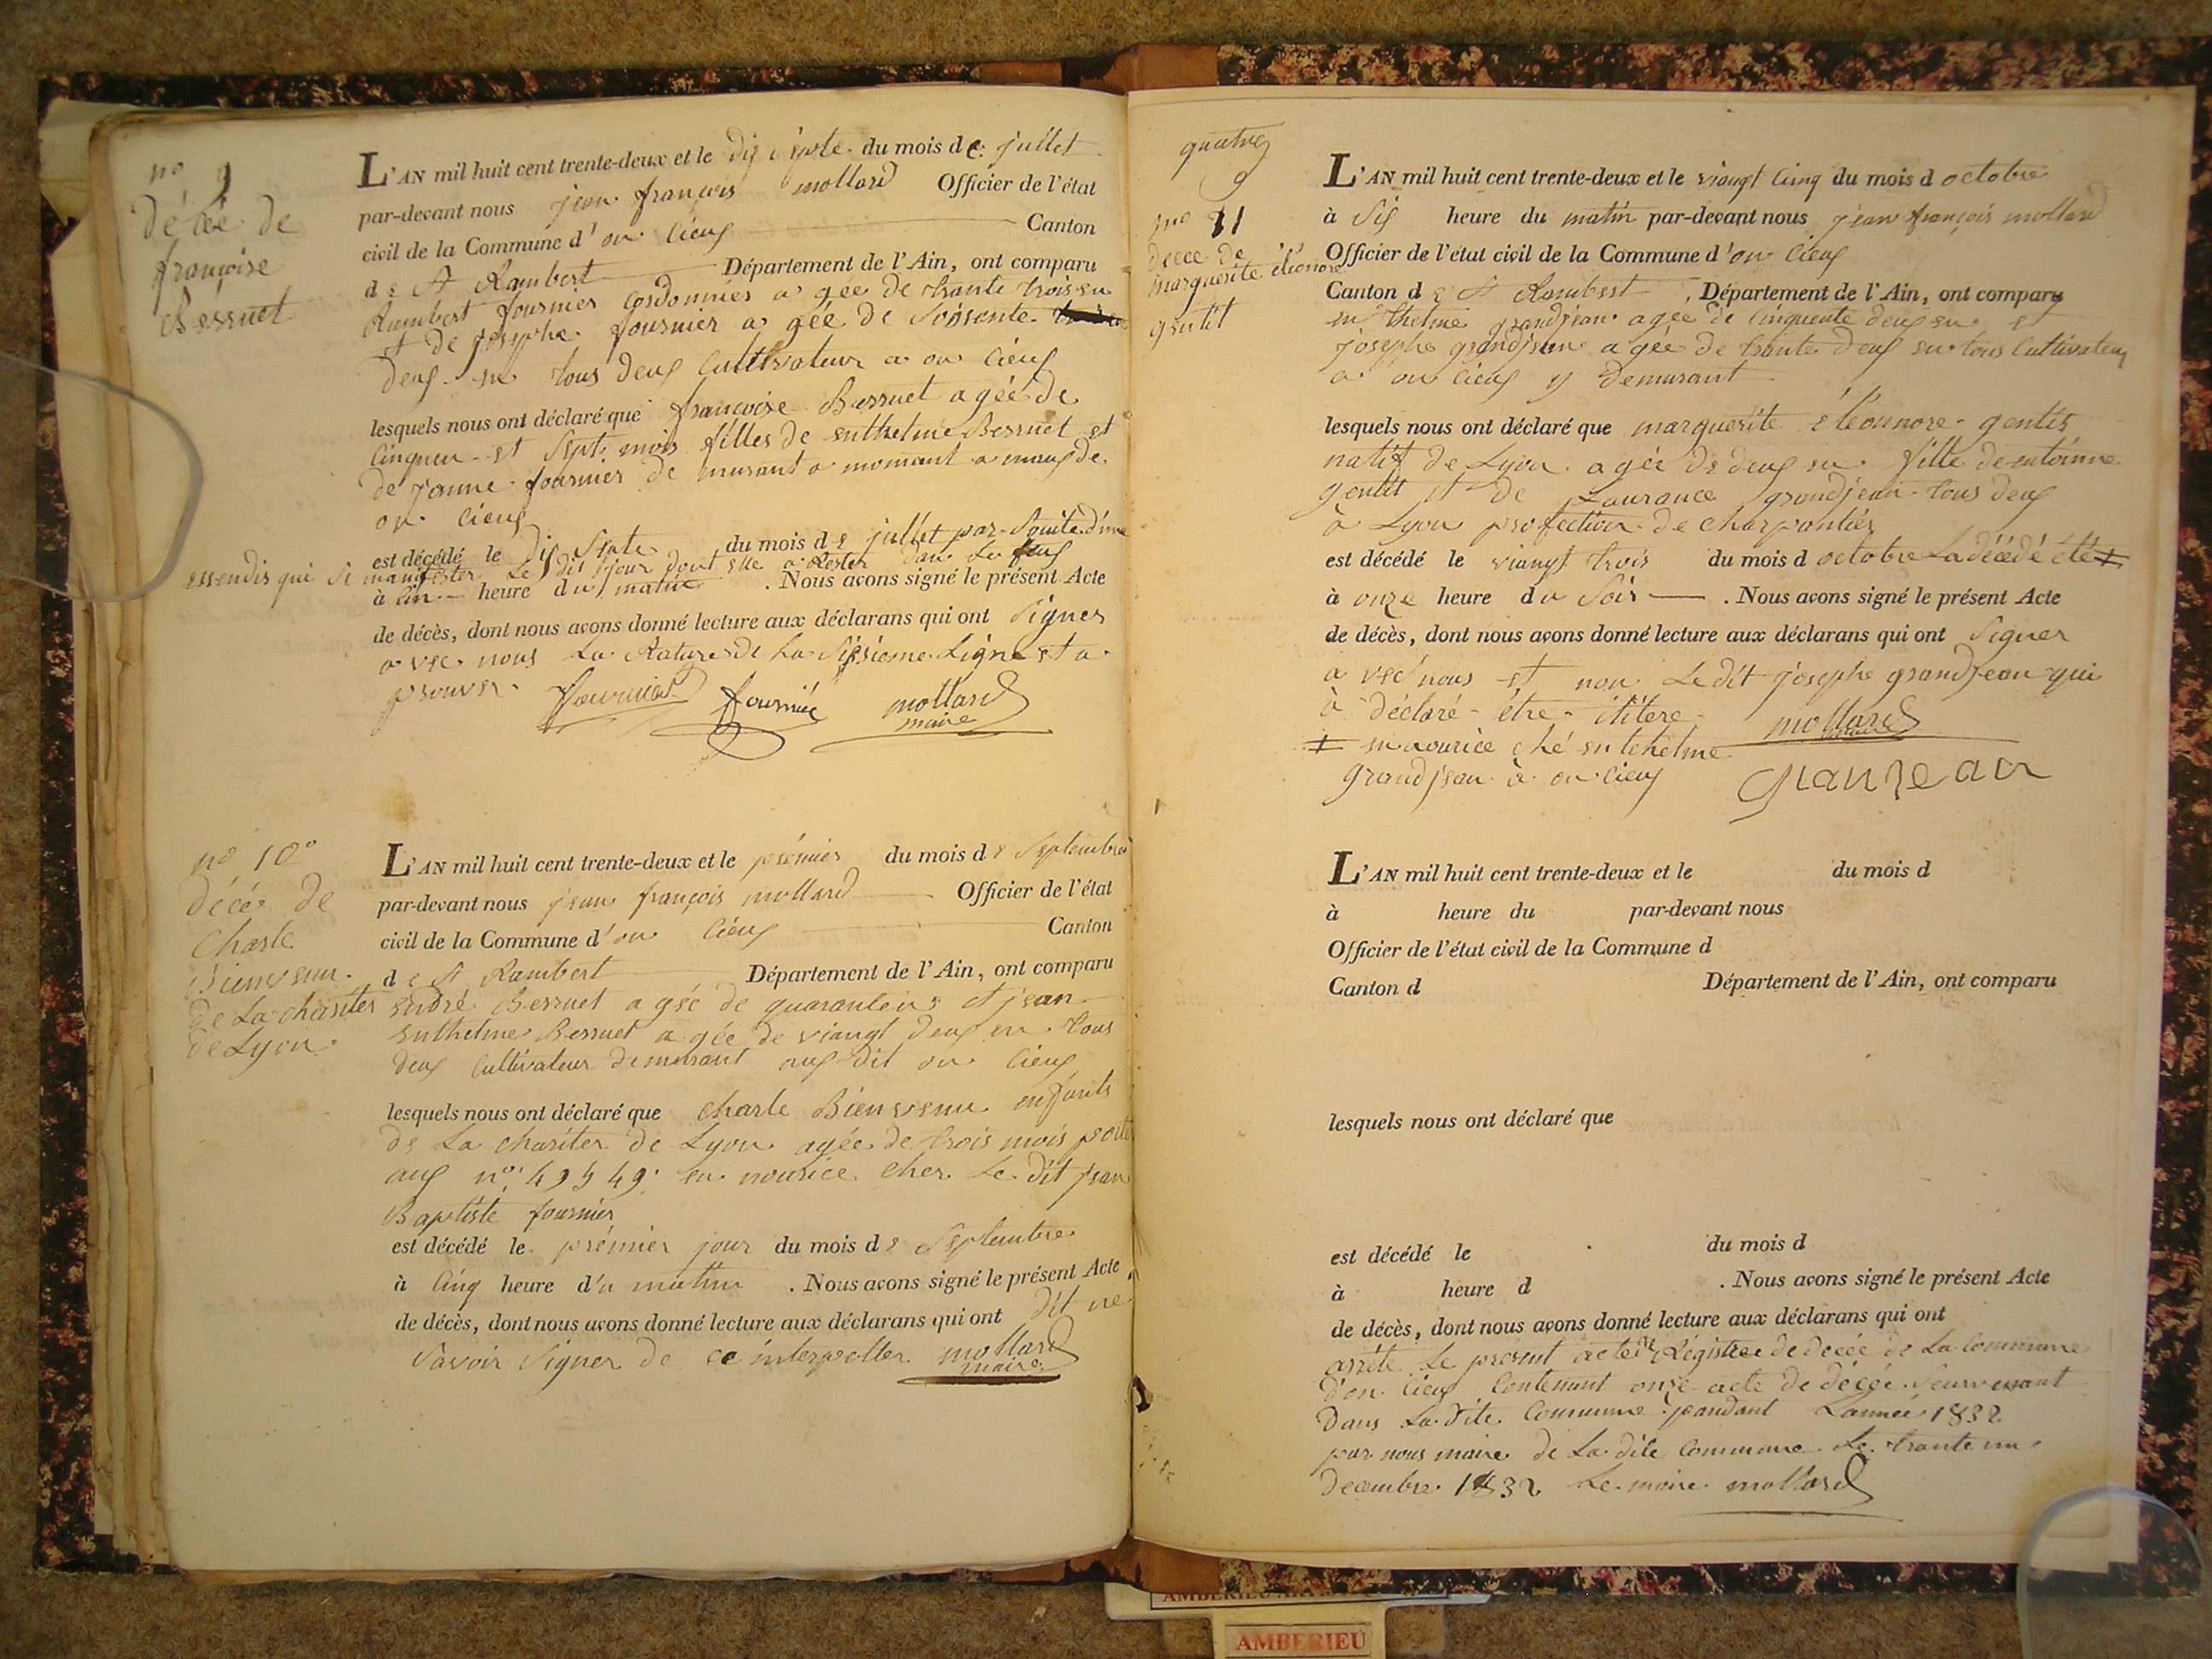 no 9
décée de
françoise
Bérruet
L'AN mil huit cent trente-deux et le dix septe du mois de juillet
par-devant nous jean françois mollard Officier de l'état
civil de la Commune d'on cieux Canton
de St Rambert Département de l'Ain, ont comparu
Rambert fournier Cordonnier a gée de trante trois en
et de josephe fournier a gée de Soisente
deux en tous deux Cultivateur a on cieux
lesquels nous ont déclaré que françoise Berruet agée de
Cinq en et Sept mois filles de enthelme Berruet et
de jeanne fournier de murant a momant a maux de
on cieux
est décédé le dix Septe du mois de juillet par Souite d'une
essendis qui Si manifester Le dis jour dont elle a Rester dan Le feux
à heure du matin . Nous avons signé le présent Acte
de décès, dont nous avons donné lecture aux déclarans qui ont Signer
a vec nous La Rature de La Sixsieme Ligne et a
prouver fournier fournié mollard
maire
no 10
décée de
Charle
Bienvenu
de La chariter
de Lyon
L'AN mil huit cent trente-deux et le prémier du mois de Septembre
par-devant nous jean françois mollard Officier de l'état
civil de la Commune d'on cieux Canton
de St Rambert Département de l'Ain, ont comparu
endré Berruet a gée de quarante et jean
enthelme Berruet a gée de viangt deux en tous
deux Cultivateur demurant aux dit on cieux
lesquels nous ont déclaré que Charle Bienvenu enfants
de La chariter de Lyon agée de trois mois porter
aux no en nourice cher Le dit jean
Baptiste fournier
est décédé le prémier jour du mois de Septembre
à Cinq heure d'u matin . Nous avons signé le présent Acte
de décès, dont nous avons donné lecture aux déclarans qui ont dit ne
Savoir Signer de ce interpeller mollard
maire
quatre
no 11
decee de
marguerite éléonore
gentit
L'AN mil huit cent trente-deux et le viangt Cinq du mois d octobre
à Six heure du matin par-devant nous jean françois mollard
Officier de l'état civil de la Commune d'on cieux
Canton de St Rambert , Département de l'Ain, ont compary
en thelme grandjean agée de Cinquente deux en et
josephe grandjean agée de trante deux en tous Cultivateur
a on cieux y demurant
lesquels nous ont déclaré que marguerite éléonnore gentit
natif de Lyon agée de deux en fille de entoinne
gentit et de Laurance grandjean tous deux
à Lyon profection de charpantier
est décédé le viangt trois du mois d octobre La décédé été ‡
à onze heure du Soir . Nous avons signé le présent Acte
de décès, dont nous avons donné lecture aux déclarans qui ont Signer
a vec nous et non Le dit josephe grandjean qui
à déclaré être ilitere mollard
‡ en nourice ché enthelme
grandjean à on cieux granjean
L'AN mil huit cent trente-deux et le du mois d
à heure du par-devant nous
Officier de l'état civil de la Commune d
Canton d Département de l'Ain, ont comparu
lesquels nous ont déclaré que
est décédé le du mois d
à heure d . Nous avons signé le présent Acte
de décès, dont nous avons donné lecture aux déclarans qui ont
arrête Le present acte Régistre de decée de La Commune
d'on cieux Contenant onze acte de décée Seurvenant
Dans La dite Commune pandant L'année 1832
par nous maire de La dite Commune Le trante un
decembre 1832 Le maire mollard
AMBERIEU